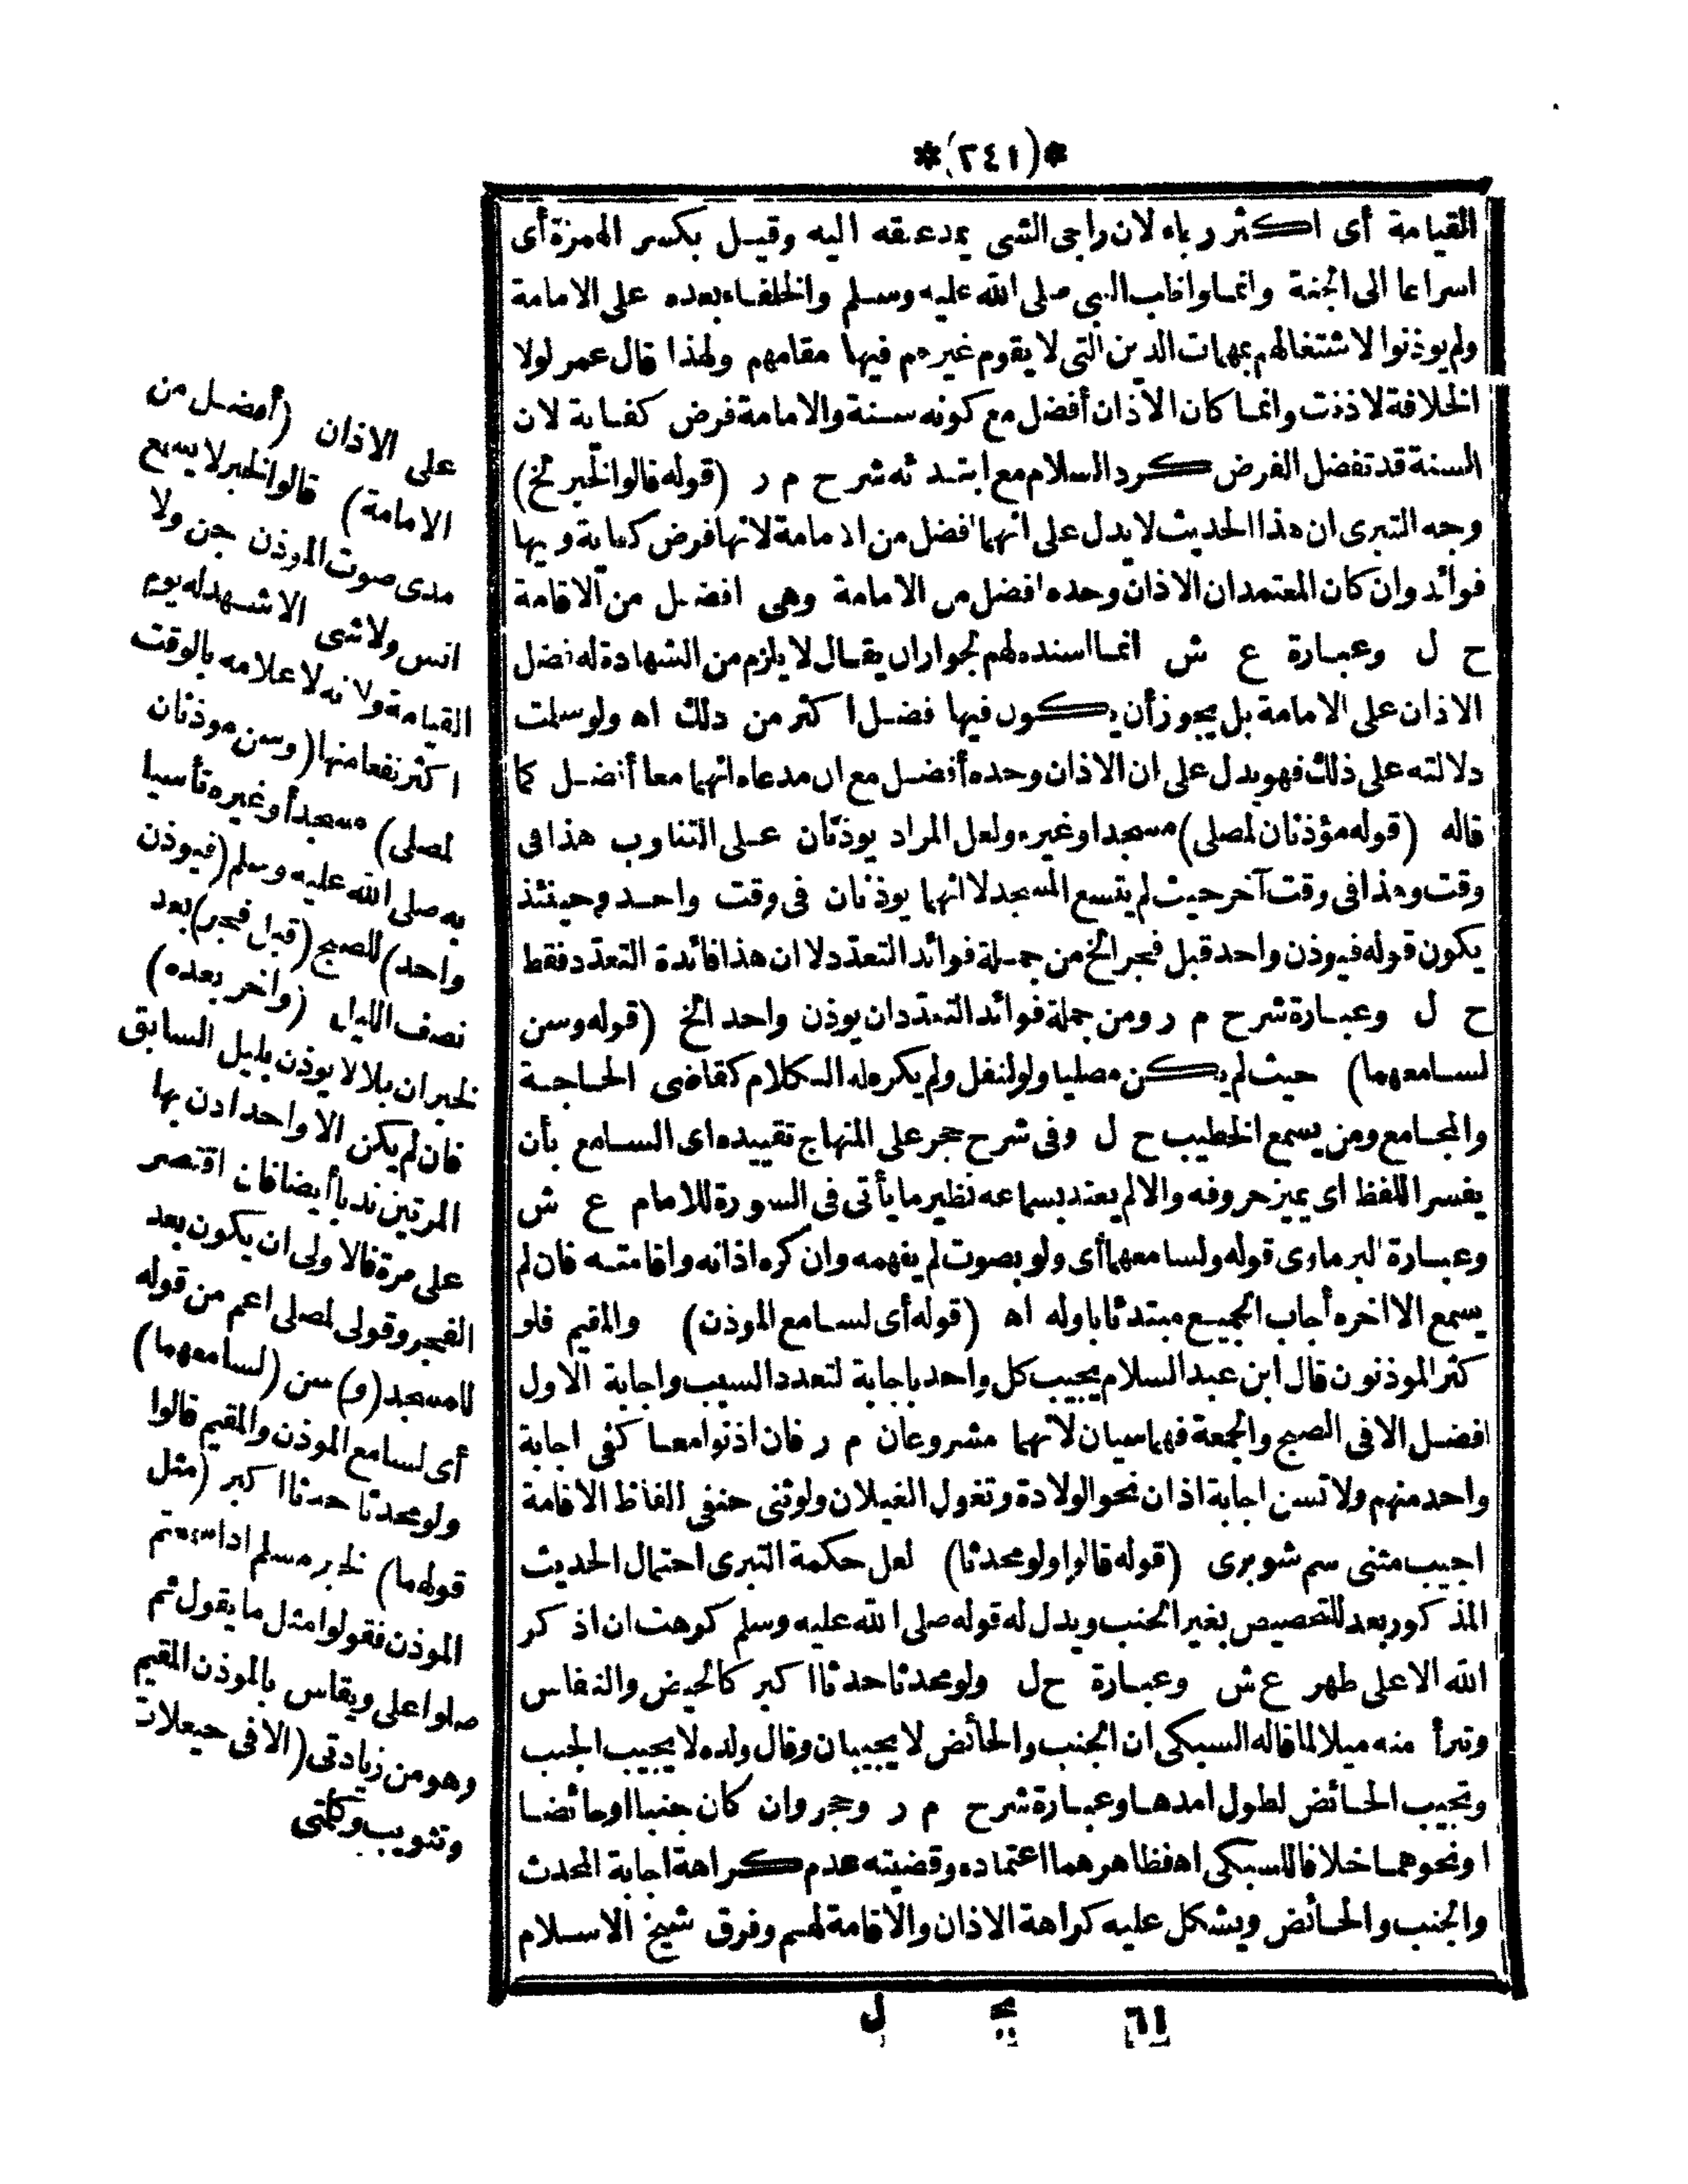 *(٢٤١)*
القيامة أى اكثر رجاء لان راجى الشى يمد عنقه اليه وقيل بكسر الهمزة أى
اسراعا الى الجنة وانما واظب النبي صلى الله عليه وسلم والخلفاء بعده على الامامة
ولم يوذنوا لاشتغالهم بمهمات الدين التى لا يقوم غيرهم فيها مقامهم ولهذا قال عمر لولا
الخلافة لاذنت وانما كان الاذان أفضل مع كونه سنة والامامة فرض كفاية لان
السنة قد تفضل الفرض كرد السلام مع ابتدئه شرح م ر (قوله قالوا لخبر الخ)
وجه التبرى ان هذا الحديث لا يدل على انهما افضل من الامامة لانها فرض كفاية وفيها
فوائد وان كان المعتمد ان الاذان وحده افضل من الامامة وهى افضل من الاقامة
ح ل وعبارة ع ش انما اسنده لهم لجواز ان يقال لا يلزم من الشهادة له فضل
الاذان على الامامة بل يجوز أن يكون فيها فضل اكثر من ذلك اه ولو سلمت
دلالته على ذلك فهو يدل على ان الاذان وحده أفضل مع ان مدعاه انهما معا أفضل كما
قاله (قوله مؤذنان لمصلى) مسجدا وغيره ولعل المراد يوذنان على التناوب هذا فى
وقت وهذا فى وقت آخر حيث لم يتسع المسجد لا انهما يوذنان فى وقت واحد وحينئذ
يكون قوله فيوذن واحد قبل فجر الخ من جملة فوائد التعدد لا ان هذا فائدة التعدد فقط
ح ل وعبارة شرح م ر ومن جملة فوائد التعدد ان يوذن واحد الخ (قوله وسن
لسامعهما) حيث لم يكن مصليا ولو لنفل ولم يكره له الكلام كقاضى الحاجة
والمجامع ومن يسمع الخطيب ح ل وفى شرح حجر على المنهاج تقييده اى السامع بأن
يفسر اللفظ اى يميز حروفه والا لم يعتد بسماعه نظير ما يأتى فى السورة للامام ع ش
وعبارة البرماوى قوله ولسامعهما أى ولو بصوت لم يفهمه وان كره اذانه واقامته فان لم
يسمع الا اخره أجاب الجميع مبتدئا باوله اه (قوله أى لسامع الموذن) والمقيم فلو
كثر الموذنون قال ابن عبد السلام يجيب كل واحد باجابة لتعدد السبب واجابة الاول
افضل الا فى الصبح والجمعة فهما سيان لانهما مشروعان م ر فان اذنوا معا كفى اجابة
واحد منهم ولا تسن اجابة اذان نحو الولادة وتغول الغيلان ولو ثنى حنفى الفاظ الاقامة
اجيب مثنى سم شوبرى (قوله قالوا ولو محدثا) لعل حكمة التبرى احتمال الحديث
المذكور بعد للتخصيص بغير الجنب ويدل له قوله صلى الله عليه وسلم كرهت ان اذكر
الله الا على طهر ع ش وعبارة ح ل ولو محدثا حدثا اكبر كالحيض والنفاس
وتبرأ منه ميلا لما قاله السبكى ان الجنب والحائض لا يجيبان وقال ولده لا يجيب الجنب
وتجيب الحائض لطول امدها وعبارة شرح م ر وحجر وان كان جنبا او حائضا
او نحوهما خلافا للسبكى اه فظاهرهما اعتماده وقضيته عدم كراهة اجابة المحدث
والجنب والحائض ويشكل عليه كراهة الاذان والاقامة لهم وفرق شيخ الاسلام
على الاذان (أفضل من
الامامة) قالوا لخبر لا يسمع
مدى صوت الموذن جن ولا
انس ولا شى الا شهد له يوم
القيامة ولانه لاعلامه بالوقت
اكثر نفعا منها (وسن موذنان
لمصلى) مسجد أو غيره تأسيا
به صلى الله عليه وسلم (فيوذن
واحد) للصبح (قبل فجر) بعد
نصف الليل (واخر بعده)
لخبر ان بلالا يوذن بليل السابق
فان لم يكن الا واحد اذن لها
المرتين ندبا أيضا فان اقتصر
على مرة فالاولى ان يكون بعد
الفجر وقولى لمصلى اعم من قوله
للمسجد (و) سن (لسامعهما)
أى لسامع الموذن والمقيم قالوا
ولو محدثا حدثا اكبر (مثل
قولهما) لخبر مسلم اذا سمعتم
الموذن فقولوا مثل ما يقول ثم
صلوا على ويقاس بالموذن المقيم
وهو من زيادتى (الا فى حيعلات
وتثويب وكلمتى
٦١ يج ل